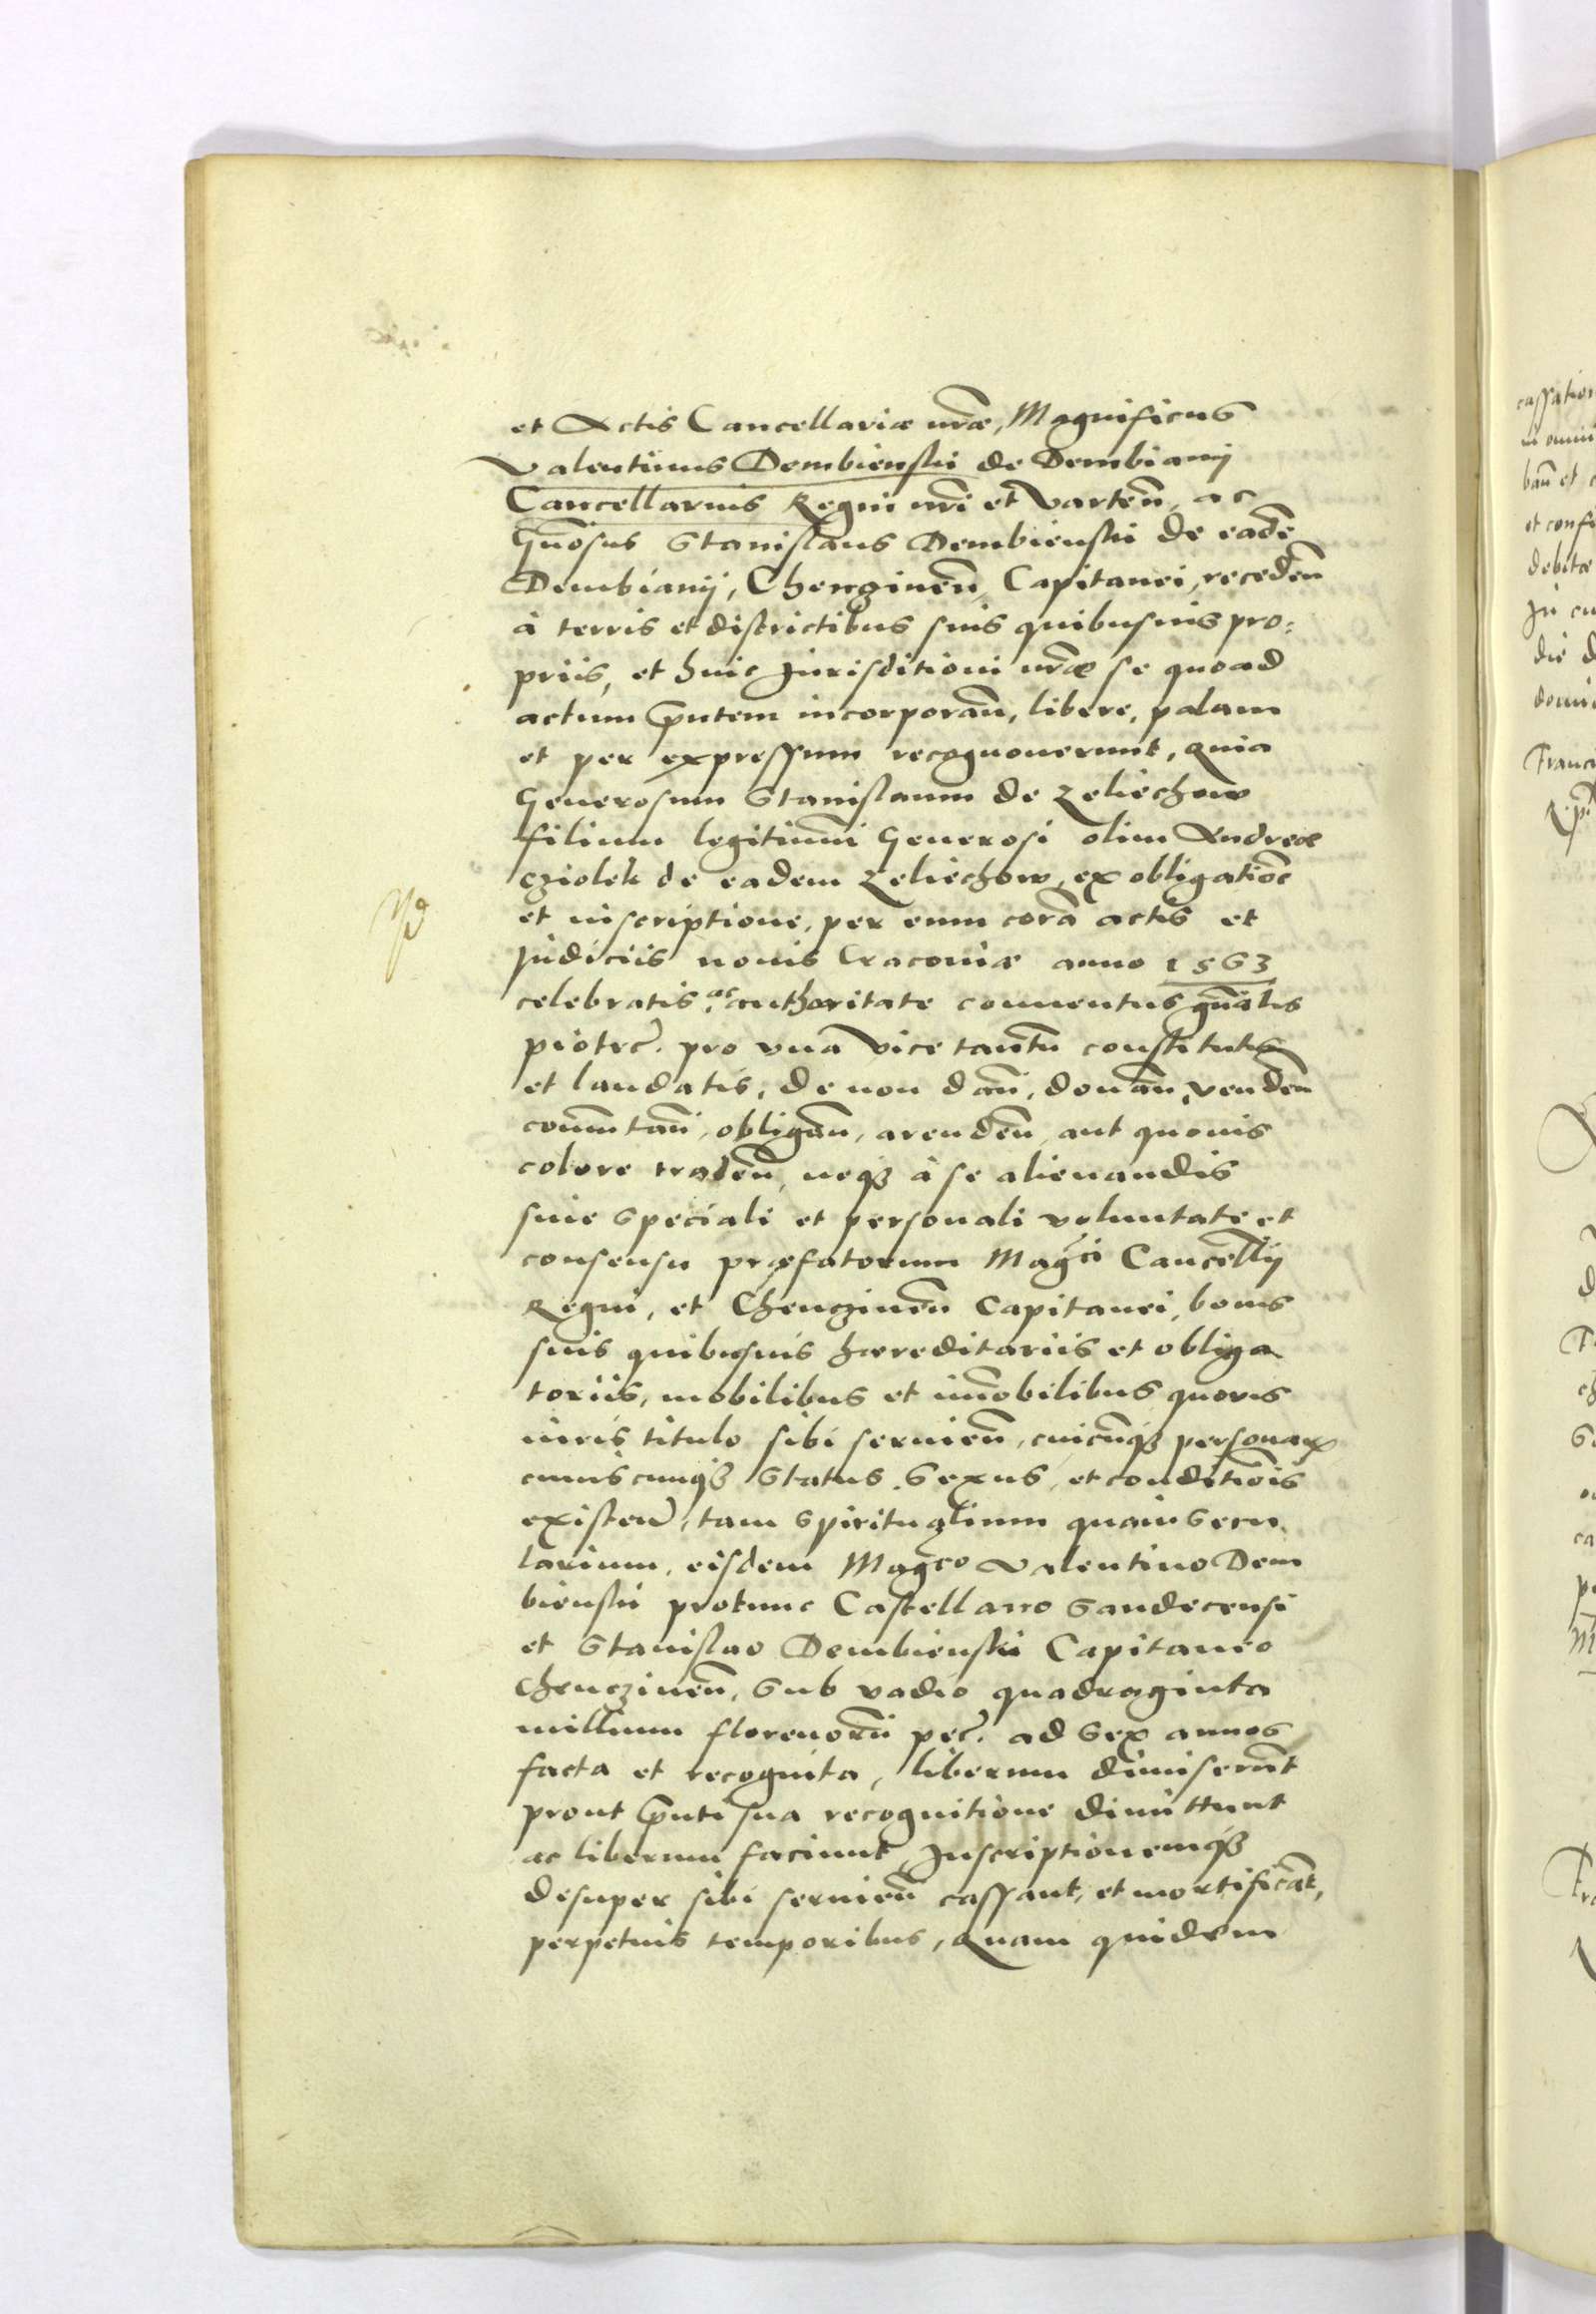 et Actis Cancellariæ nr̃æ, Magnificus
Valentinus Dembienski de Dembiany
Cancellarius Regni nr̃i et Varten̄, ac
Gn̄osus Stanislaus Dembienski de eadē
Dembiany, Chenginen̄, Capitanei, receden̄
à terris et districtibus suis quibusuis pro:
priis, et huic Jurisditioni nr̃æ se quoad
actum p̄ntem incorporan̄, libere, palam
et per expressum recognouerunt, Quia
Generosum Stanislaum de Zeliechow
filium legitimū Generosi olim Andreæ
Cziolek de eadem Zeliechow, ex obligatiōe
et inscriptione, per eum corā actis et
Judiciis nouis Cracouiæ anno 1563
celebratis, ac authoritate conuentus gn̄alis
piotrc̃. pro vna vice tantū constitutis
et laudatis, de non dan̄, donan̄, venden̄
com̄utan̄, obligan̄, arenden̄, aut quouis
colore traden̄, neq3 à se alienandis
sine speciali et personali voluntate et
consensu præfatorum Mag̃ci Cancell̃ii
Regni, et Chenczinen̄ Capitanei, bonis
suis quibusuis hæreditariis et obliga
toriis, mobilibus et im̄obilibus quouis
iuris titulo sibi seruien̄, cuicūq3 personar̃
cuiuscunq3 status, sexus, et conditiōis
existen̄, tam spiritualium quam secu
larium, eisdem Mag̃co Valentino Dem
bienski protunc Castellano Sandecensi
et Stanislao Dembienski Capitaneo
Chenczinen̄, sub vadio quadraginta
millium florenorū pec̃. ad sex annos
facta et recognita, liberum dimiserūt
prout p̄nti sua recognitione dimittunt
ac liberum faciunt, Inscriptionemq3
desuper sibi seruien̄ cassant, et mortificāt,
perpetuis temporibus, Quam quidem